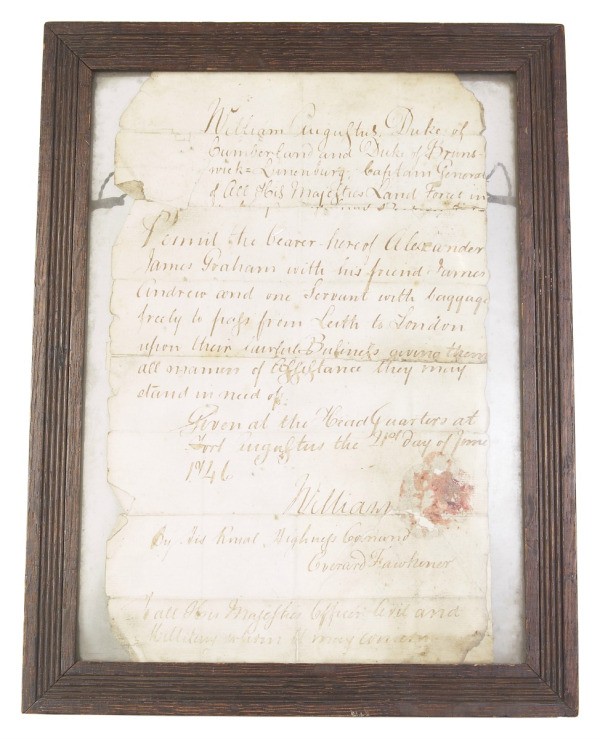 William Augustus, Duke of
Cumberland and Duke of Bruns
wick=Lunenburg. Captain General
of All His Majesties Land Forces in
Permit the bearer hereof Alexander
James Graham with his friend James
Andrew and one Servant with baggage
freely to pass from Leith to London
upon their lawfull Business giving them
all manner of Assistance they may
stand in need of:
Given at the Head Quarters at
Fort Augustus the 21st day of June
1746
William
By His Royal Highness Comand
Everard Fawkener
To all His Majesties Officers Civil and
Military whom it may concern